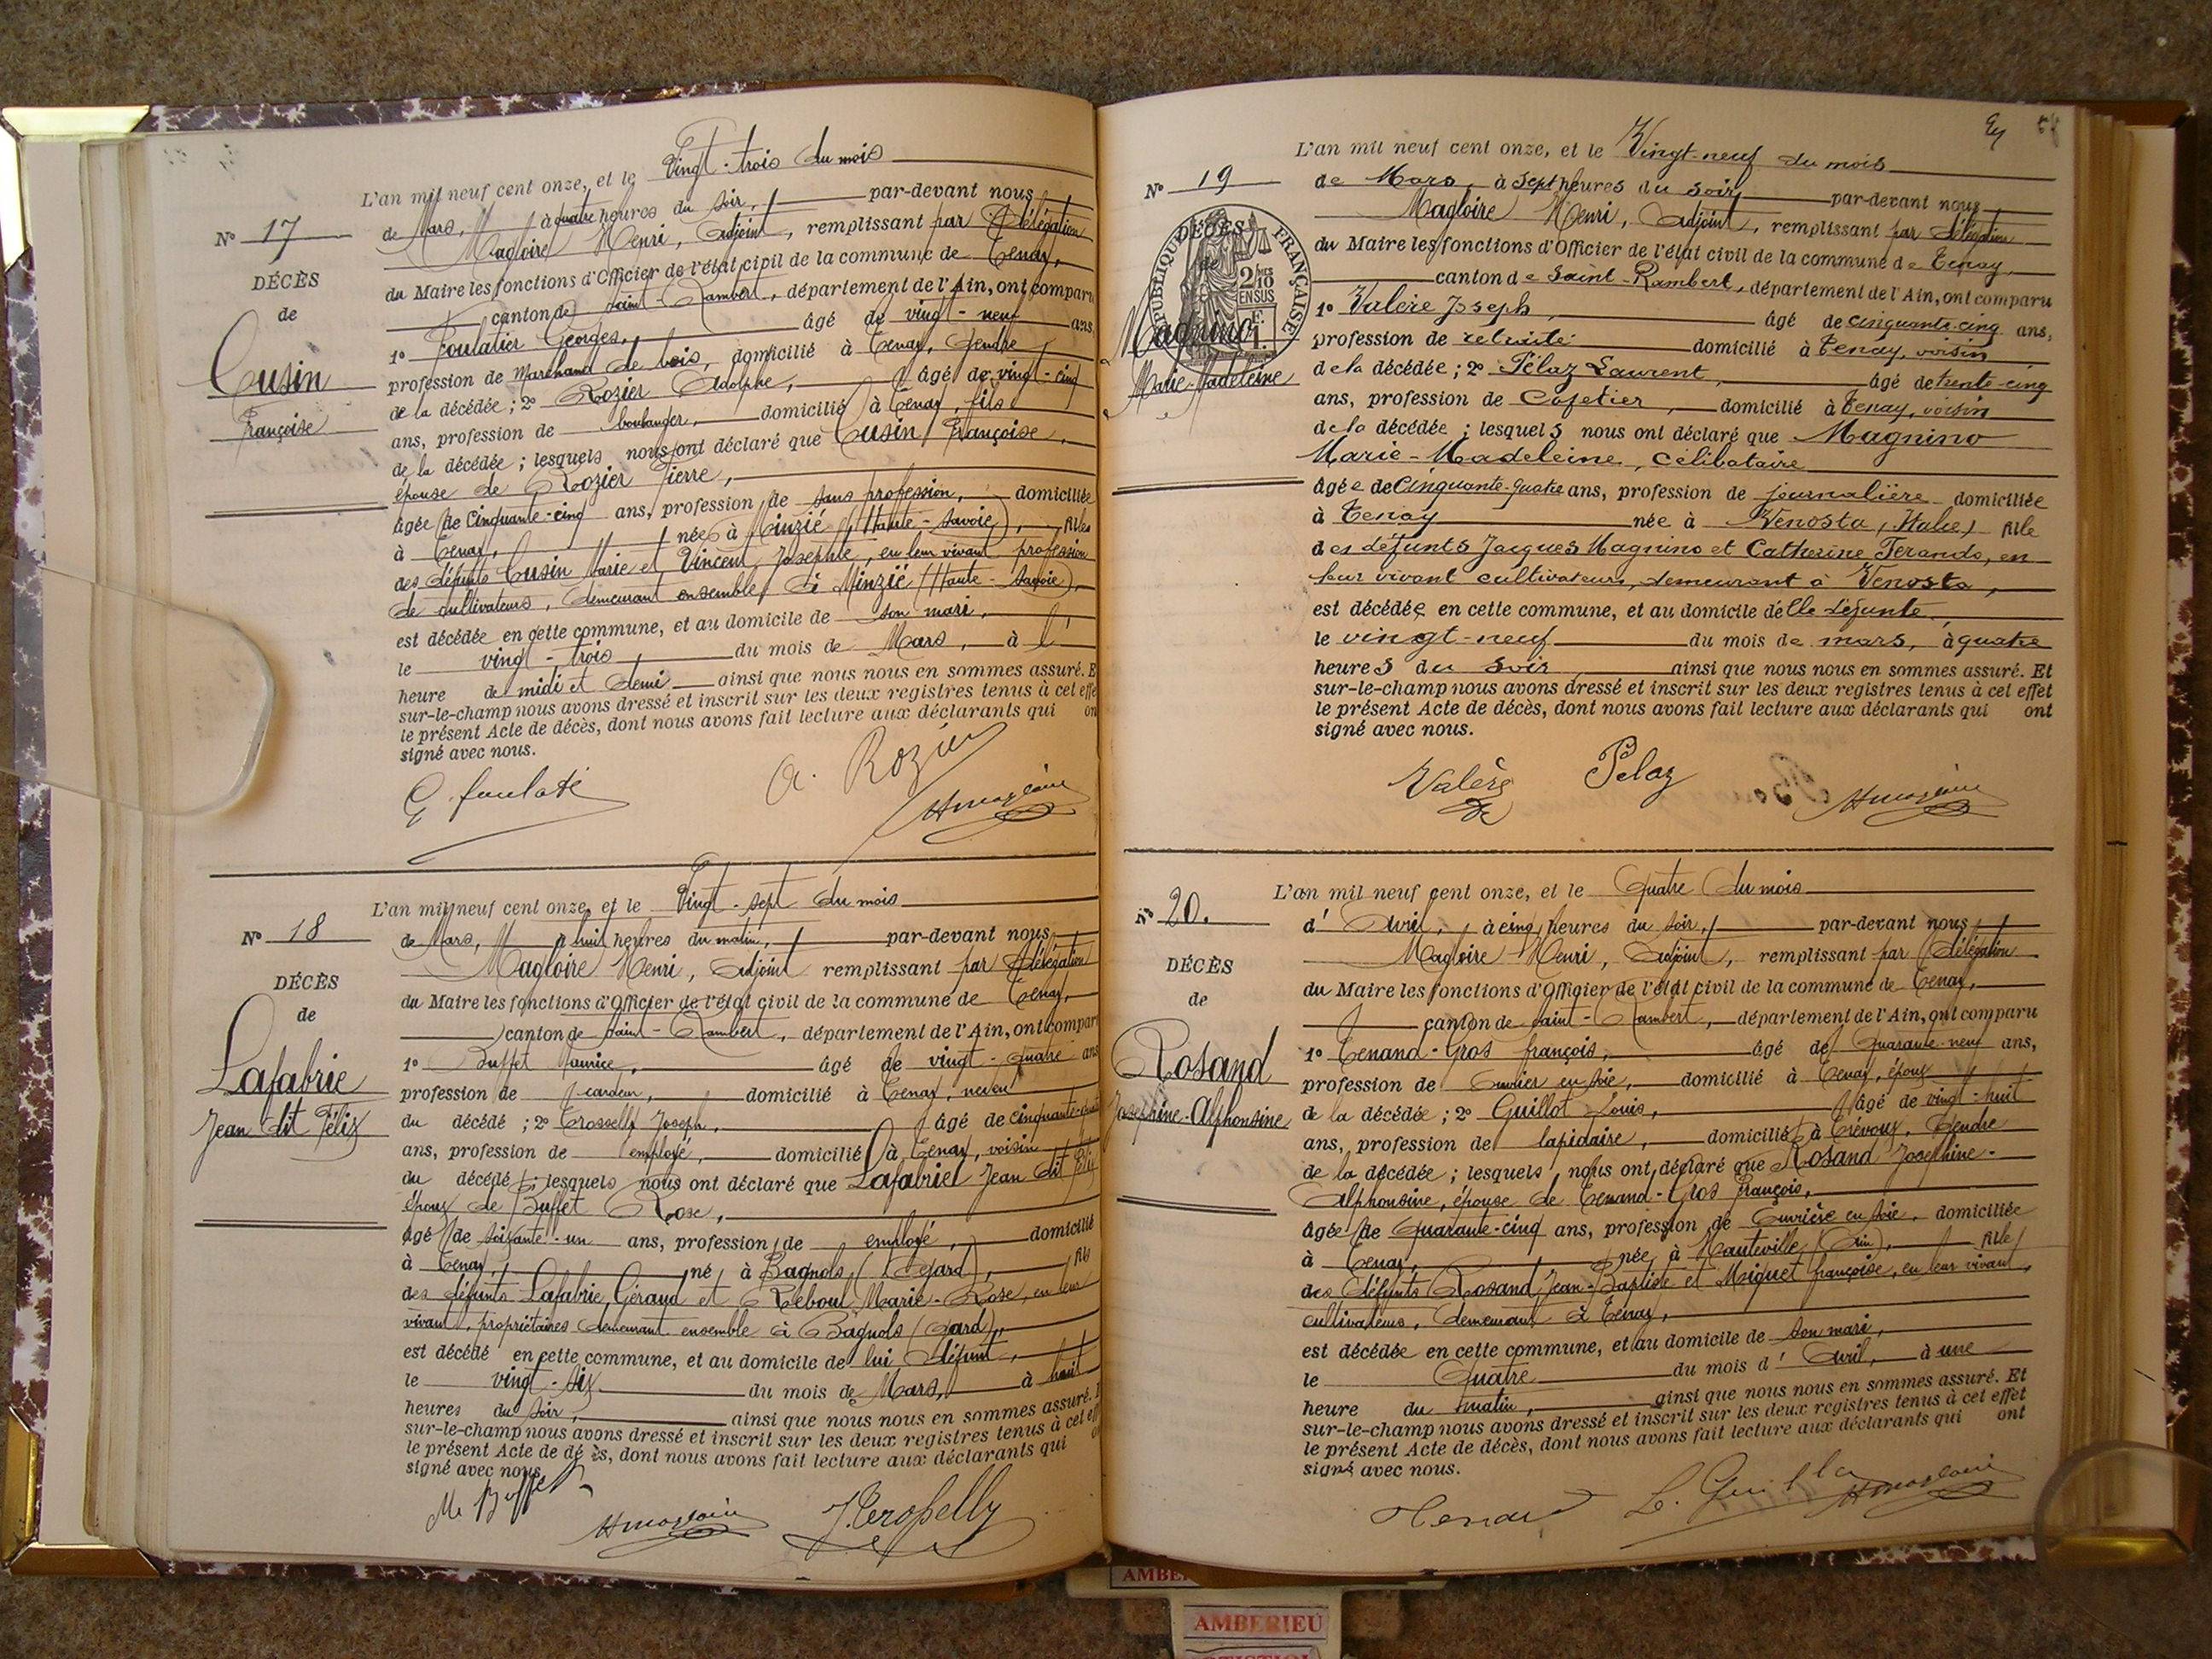 L'an mil neuf cent onze, et le Vingt-trois du mois
de Mars, à quatre heures du soir, par-devant nous
Magloire Henri, Adjoint, remplissant par délégation
du Maire les fonctions d'Officier de l'état civil de la commune de Tenay,
canton de Saint-Rambert, département de l'Ain, ont comparu
1° Foulatier Georges, âgé de vingt-neuf ans,
profession de Marchand de bois, domicilié à Tenay, Gendre
de la décédée ; 2° Rozier Adolphe, âgé de vingt-cinq
ans, profession de boulanger, domicilié à Tenay, fils
de la décédée ; lesquels nous ont déclaré que Cusin Françoise,
épouse de Rozier Pierre,
âgée de Cinquante-cinq ans, profession de sans profession, domiciliée
à Tenay, née à Minzié (Haute-Savoie), fille
des défunts Cusin Marie et Vincent Josephte, en leur vivant profession
de cultivateurs, demeurant ensemble à Minzié (Haute-Savoie),
est décédée en cette commune, et au domicile de son mari,
le vingt-trois du mois de Mars, à l'
heure de midi et demi ainsi que nous nous en sommes assuré. E
sur-le-champ nous avons dressé et inscrit sur les deux registres tenus à cet effe
le présent Acte de décès, dont nous avons fait lecture aux déclarants qui on
signé avec nous.
N° 17
DÉCÈS
de
Cusin
Françoise
A. Rozier
HMagloire
L'an mil neuf cent onze, et le Vingt-sept du mois
de Mars, à huit heures du matin, par-devant nous
Magloire Henri, Adjoint remplissant par délégation
du Maire les fonctions d'Officier de l'état civil de la commune de Tenay,
canton de Saint-Rambert, département de l'Ain, ont compar
1° Buffet Maurice, âgé de vingt-quatre ans
profession de cardeur, domicilié à Tenay, neveu
du décédé ; 2° Crosselly Joseph, âgé de cinquante
ans, profession de employé, domicilié à Tenay, voisin
du décédé ; lesquels nous ont déclaré que Lafabrie Jean dit Félix
époux de Buffet Rose,
âgé de soixante-un ans, profession de employé, domicilié
à Tenay, né à Bagnols (Gard), fils
des défunts Lafabrie Géraud et Reboul Marie-Rose, en leur
vivant, propriétaires demeurant ensemble à Bagnols (Gard),
est décédé en cette commune, et au domicile de lui défunt,
le vingt-six du mois de Mars, à huit
heures du soir, ainsi que nous nous en sommes assuré.
sur-le-champ nous avons dressé et inscrit sur les deux registres tenus à cet eff
le présent Acte de dé ès, dont nous avons fait lecture aux déclarants qui
signé avec nous
N° 18
DÉCÈS
de
Lafabrie
Jean dit Félix
M. Buffet
HMagloire
L'an mil neuf cent onze, et le Vingt-neuf du mois
de Mars, à sept heures du soir, par-devant nous
Magloire Henri, Adjoint, remplissant par délégation
du Maire les fonctions d'Officier de l'état civil de la commune de Tenay
canton de Saint-Rambert, département de l'Ain, ont comparu
1° Valère Joseph, âgé de cinquante-cinq ans,
profession de retraité domicilié à Tenay, voisin
de la décédée ; 2° Pélaz Laurent, âgé de trente-cinq
ans, profession de Cafetier, domicilié à Tenay, voisin
de la décédée ; lesquels nous ont déclaré que Magnino
Marie-Madeleine, célibataire
âgée de Cinquante-quatre ans, profession de journalière domiciliée
à Tenay née à Venosta (Italie) fille
des défunts Jacques Magnino et Catherine Ferando, en
leur vivant cultivateurs, demeurant à Venosta,
est décédée en cette commune, et au domicile d'elle défunte
le vingt-neuf du mois de mars, à quatre
heures du soir ainsi que nous nous en sommes assuré. Et
sur-le-champ nous avons dressé et inscrit sur les deux registres tenus à cet effet
le présent Acte de décès, dont nous avons fait lecture aux déclarants qui ont
signé avec nous.
N° 19
DÉCÈS
de
RÉPUBLIQUE FRANÇAISE
2/10
EN SUS
Magnino
Marie-Madeleine
Valère
Pelaz
HMagloire
L'an mil neuf cent onze, et le Quatre du mois
d' Avril, à cinq heures du soir, par-devant nous
Magloire Henri, Adjoint, remplissant par délégation
du Maire les fonctions d'Officier de l'état civil de la commune de Tenay,
canton de Saint-Rambert, département de l'Ain, ont comparu
1° Tenand-Gros François, âgé de Quarante-neuf ans,
profession de Ouvrier en soie, domicilié à Tenay, époux
de la décédée ; 2° Guillot Louis, âgé de vingt-huit
ans, profession de lapidaire, domicilié à Trévoux, Gendre
de la décédée ; lesquels nous ont déclaré que Rosand Josephine-
Alphonsine, épouse de Tenand-Gros François,
âgée de Quarante-cinq ans, profession de Ouvrière en soie, domiciliée
à Tenay, née à Hauteville (Ain), fille
des défunts Rosand Jean-Baptiste et Miguet Françoise, en leur vivant,
cultivateurs, demeurant à Tenay,
est décédée en cette commune, et au domicile de son mari,
le Quatre du mois d' Avril, à une
heure du matin, ainsi que nous nous en sommes assuré. Et
sur-le-champ nous avons dressé et inscrit sur les deux registres tenus à cet effet
le présent Acte de décès, dont nous avons fait lecture aux déclarants qui ont
signé avec nous.
N° 20.
DÉCÈS
de
Rosand
Josephine-Alphonsine
HMagloire
AMBERIEU